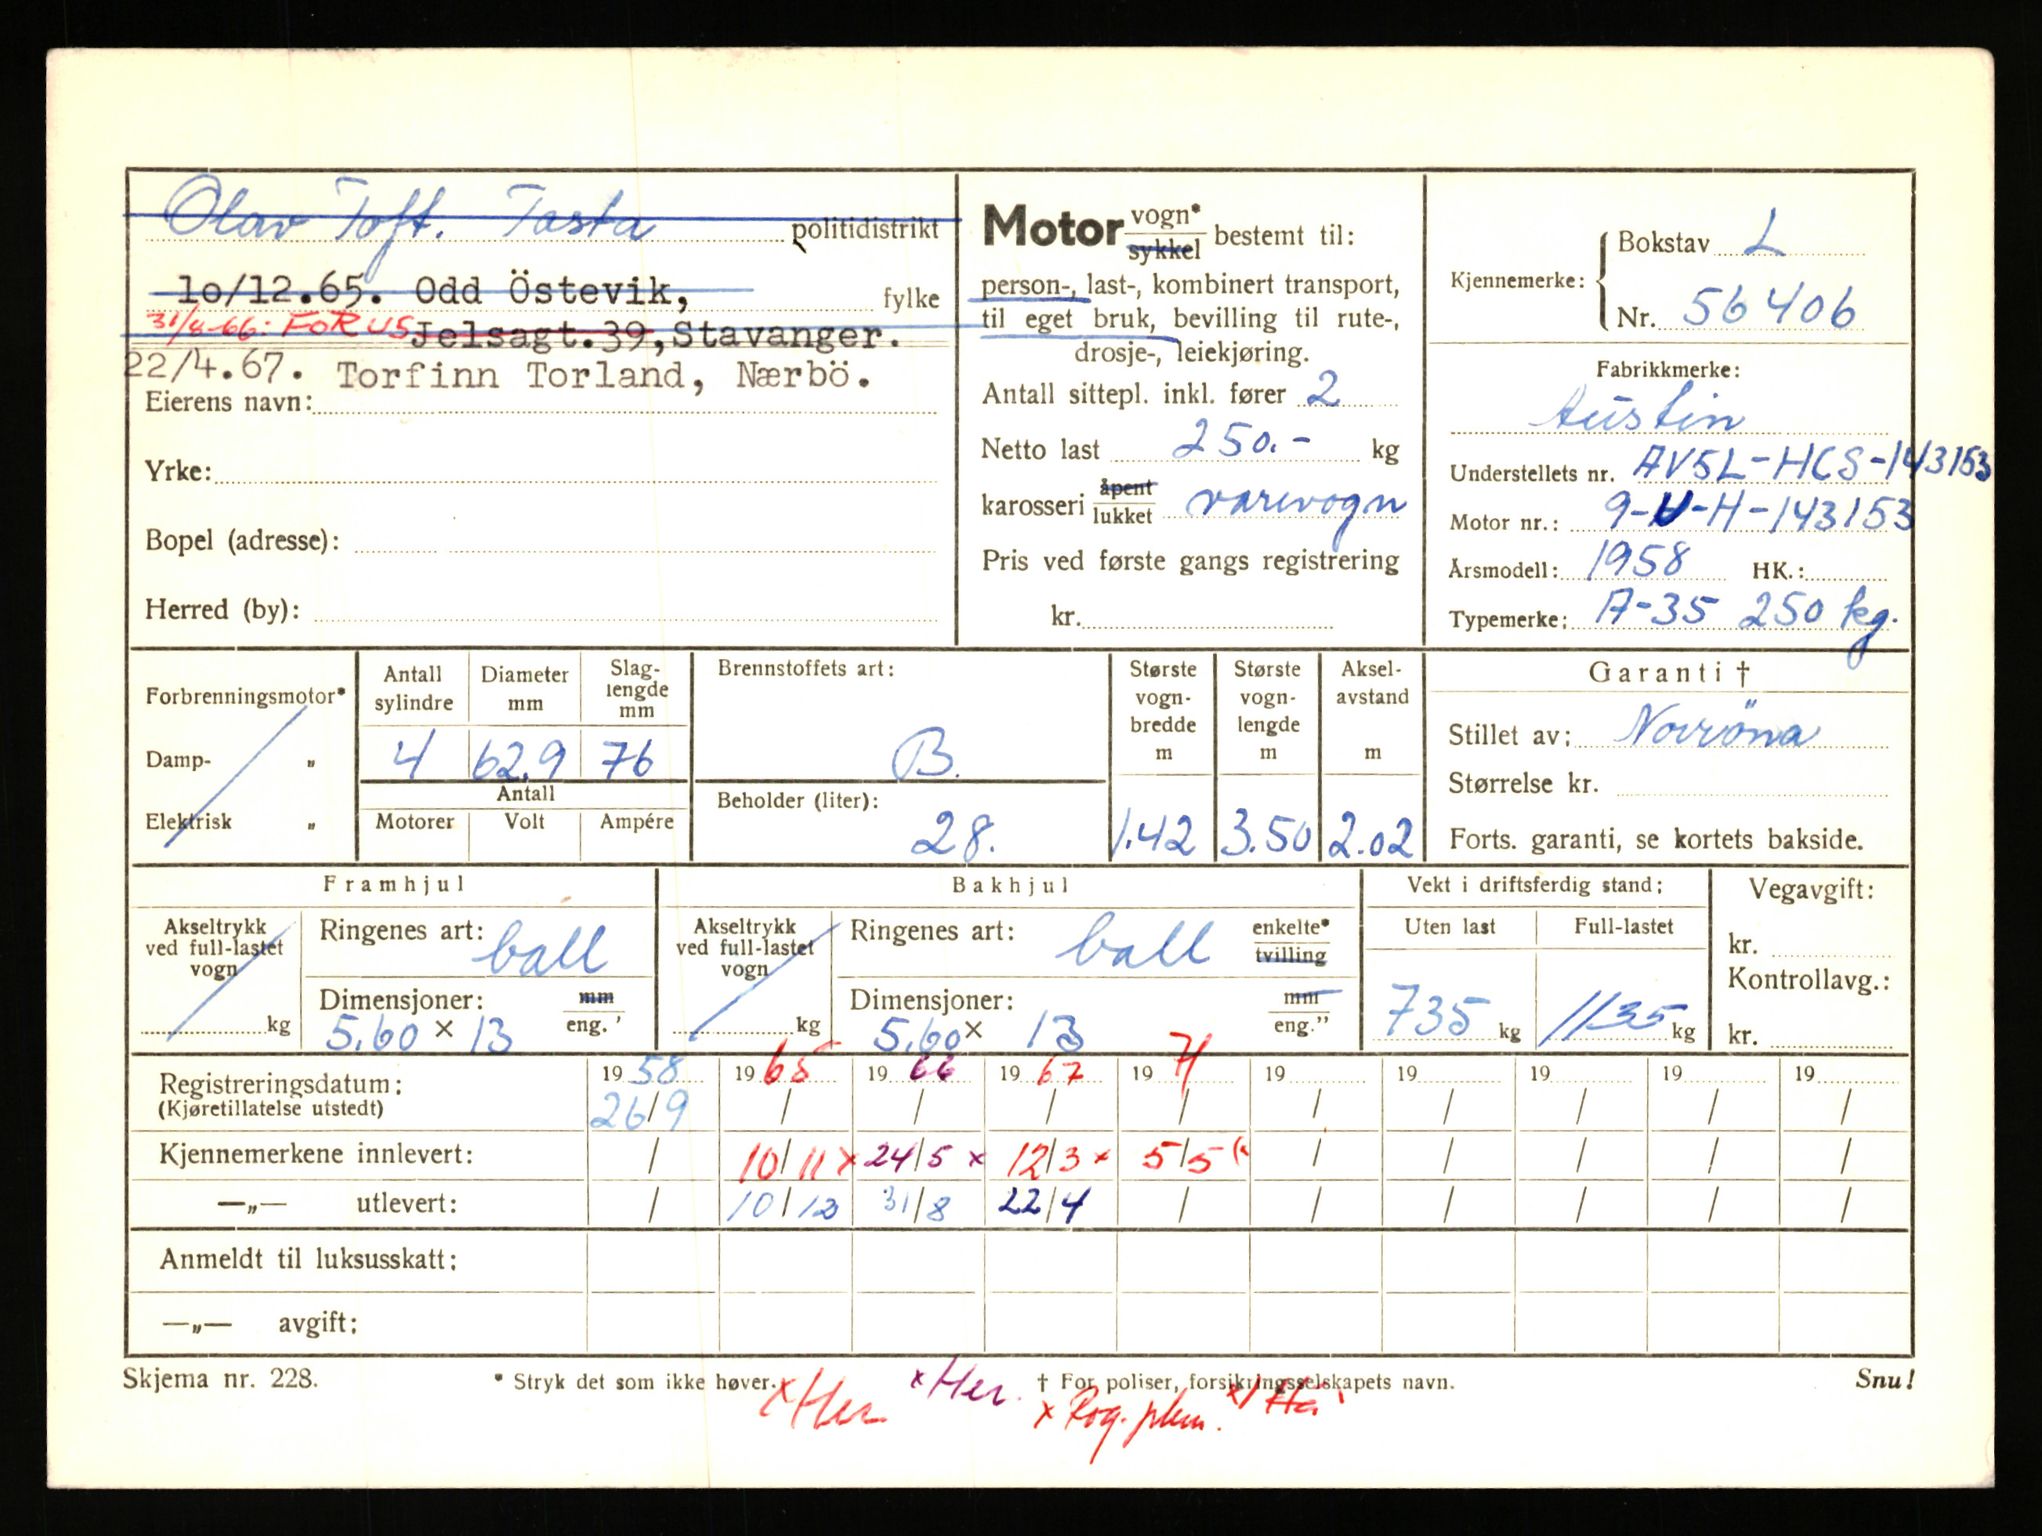 Olav Toft. Tasta politidistrikt
10/12.65. Odd Östevik, fylke
31/8-66: FORUS Jelsagt.39, Stavanger.
22/4.67. Torfinn Torland, Nærbö.
Eierens navn:
Yrke:
Bopel (adresse):
Herred (by):
Motor vogn* sykkel bestemt til:
person-, last-, kombinert transport,
til eget bruk, bevilling til rute-,
drosje-, leiekjøring.
Antall sittepl. inkl. fører 2
Netto last 250.- kg
karosseri åpent lukket varevogn
Pris ved første gangs registrering
kr.
Kjennemerke: Bokstav L
Nr. 56406
Fabrikkmerke:
Austin
Understellets nr. AV5L-HCS-143153
Motor nr.: 9-U-H-143153
Årsmodell: 1958 HK.:
Typemerke: A-35 250 kg.
Forbrenningsmotor*
Damp- „
Elektrisk „
Antall sylindre
Diameter mm
Slaglengde mm
4 62.9 76
Antall
Motorer Volt Ampére
Brennstoffets art:
B.
Beholder (liter):
28.
Største vogn-bredde m
Største vogn-lengde m
Aksel-avstand m
1.42 3.50 2.02
Garanti †
Stillet av: Norröna
Størrelse kr.
Forts. garanti, se kortets bakside.
Framhjul
Akseltrykk ved full-lastet vogn
kg
Ringenes art: ball
Dimensjoner: mm eng. '
5.60 × 13
Bakhjul
Akseltrykk ved full-lastet vogn
kg
Ringenes art: ball enkelte* tvilling
Dimensjoner: mm eng."
5.60 × 13
Vekt i driftsferdig stand:
Uten last Full-lastet
735 kg 1135 kg
Vegavgift:
kr.
Kontrollavg.:
kr.
Registreringsdatum: 19 58 19 65 19 66 19 67 19 71 19 19 19 19 19
(Kjøretillatelse utstedt) 26/9 / / / / / / / / /
Kjennemerkene innlevert: / 10/11 x 24/5 x 12/3 x 5/5 (x / / / / /
—„— utlevert: / 10/12 31/8 22/4 / / / / / /
Anmeldt til luksusskatt:
—„— avgift:
Skjema nr. 228. * Stryk det som ikke høver. † For poliser, forsikringsselskapets navn. Snu!
x Her x Her. x Rog. plm. x) Hå